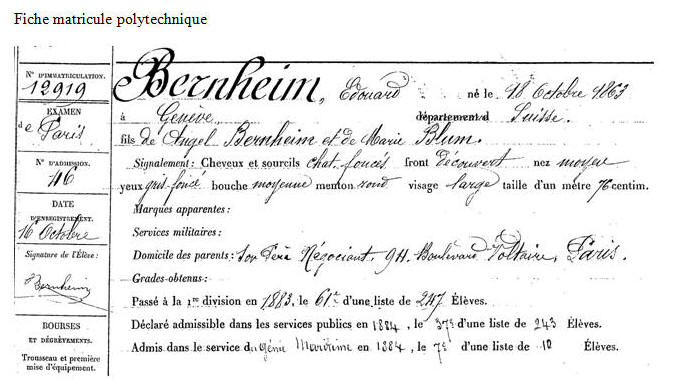 Fiche matricule polytechnique
N° D'IMMATRICULATION.
12919
EXAMEN
de Paris
N° D'ADMISSION.
46
DATE
D'ENREGISTREMENT.
16 Octobre
Signature de l'Élève:
Bernheim
BOURSES
ET DÉGRÈVEMENTS.
Trousseau et première
mise d'équipement.
Bernheim, Édouard né le 18 Octobre 1863
à Genève, département d Suisse.
fils de Angel Bernheim et de Marie Blum.
Signalement: Cheveux et sourcils chat. foncés front découvert nez moyen
yeux gris foncé bouche moyenne menton rond visage large taille d'un mètre 76 centim.
Marques apparentes:
Services militaires:
Domicile des parents: Son Père Négociant, 94. Boulevard Voltaire, Paris.
Grades obtenus:
Passé à la 1re division en 1883, le 61e d'une liste de 247 Élèves.
Déclaré admissible dans les services publics en 1884, le 37e d'une liste de 243 Élèves.
Admis dans le service du génie Maritime en 1884, le 7e d'une liste de 10 Élèves.